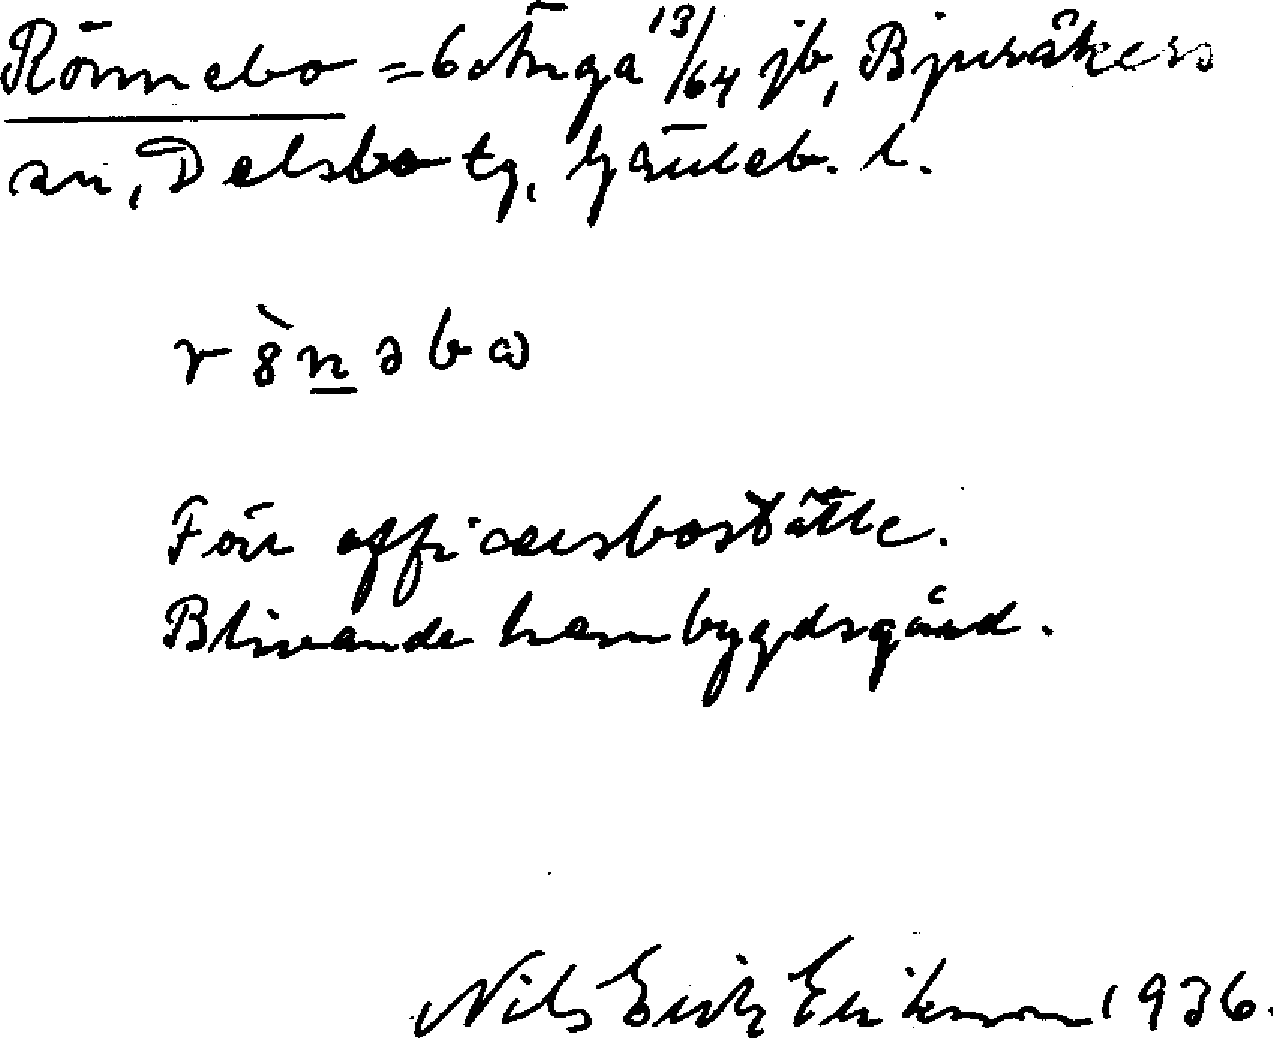 Rönnebo = 6 Änga 13/64 jb, Bjuråkers
sn, Delsbo tg, Gävleb. l.
r ö̀ n ə b ω
Förr officersboställe.
Blivande hembygdsgård.
Nils Erik Eriksson 1936.